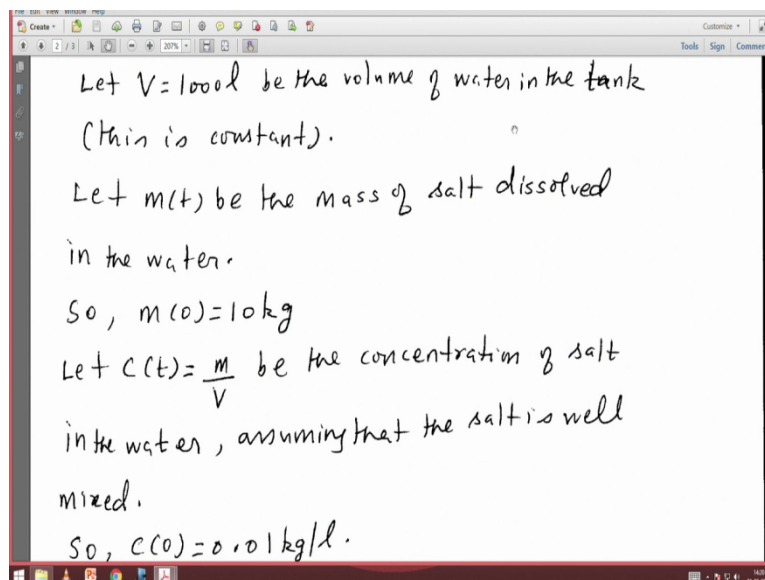 File Edit View Window Help
Create Customize
2 / 3 207% Tools Sign Commer
Let V=1000l be the volume of water in the tank
(this is constant).
Let m(t) be the mass of salt dissolved
in the water.
So, m(0)=10kg
Let C(t)= m/V be the concentration of salt
in the water, assuming that the salt is well
mixed.
So, C(0)=0.01kg/l.